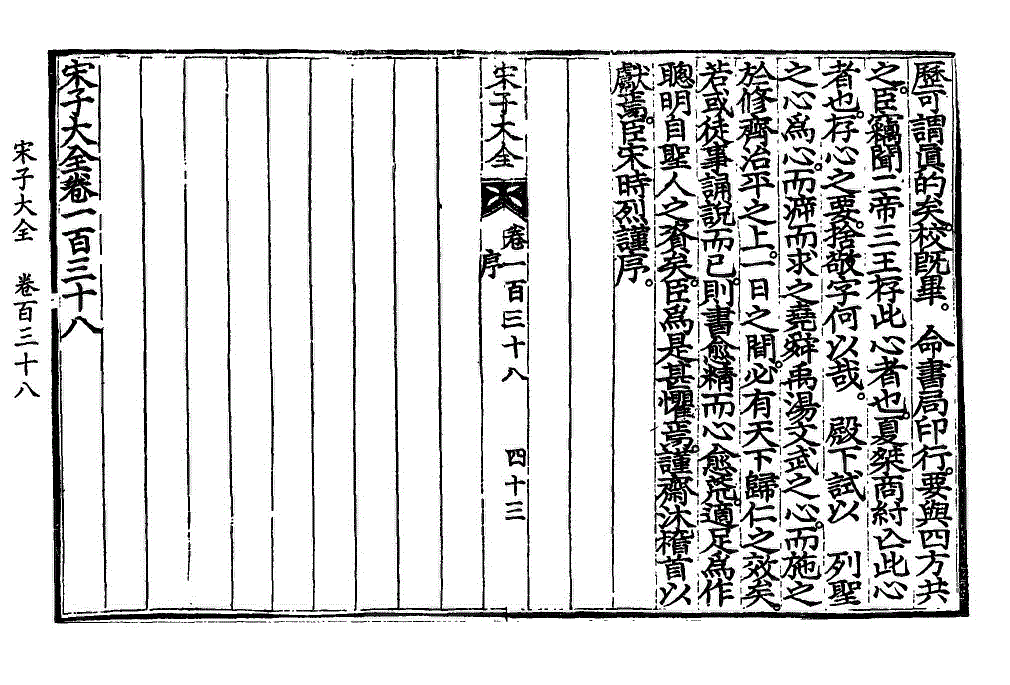 歷可謂眞的矣校旣畢。 命書局印行。要與四方共
之。臣竊聞二帝三王存此心者也。夏桀商紂亾此心
者也。存心之要。捨敬字何以哉。 殿下試以 列聖
之心爲心。而泝而求之堯舜禹湯文武之心。而施之
於修齊治平之上。一日之間。必有天下歸仁之效矣。
若或徒事誦說而已。則書愈精而心愈荒。適足爲作
聰明自聖人之資矣。臣爲是甚懼焉。謹齋沐稽首以
獻焉。臣宋時烈謹序。
宋子大全 卷一百三十八 四十三
序
宋子大全卷一百三十八
宋子大全 卷百三十八